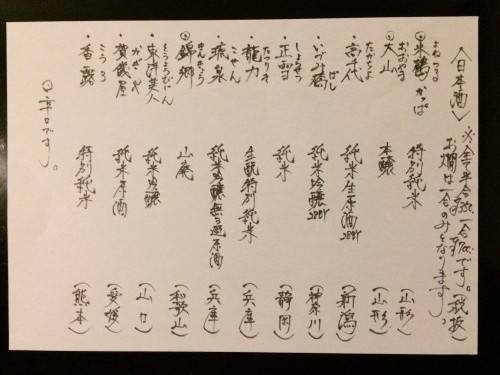 〈日本酒〉 ※全て半合350 一合700です。(税抜)
お燗は一合のみとなります。
・米鶴 かっぱ 特別純米 (山形)
よねつる
⊙大山 本醸 (山形)
おおやま
・高千代 純米生原酒28BY (新潟)
たかちよ
・いづみ橋 純米吟醸28BY (神奈川)
ばし
・正雪 純米 (静岡)
しょうせつ
・龍力 生酛特別純米 (兵庫)
たつりき
・琥泉 純米吟醸無ろ過原酒 (兵庫)
こせん
⊙錦郷 山廃 (和歌山)
きんきょう
・東洋美人 純米吟醸 (山口)
とうようびじん
・賀儀屋 純米原酒 (愛媛)
かぎや
・香露 特別純米 (熊本)
こうろ
⊙辛口です。